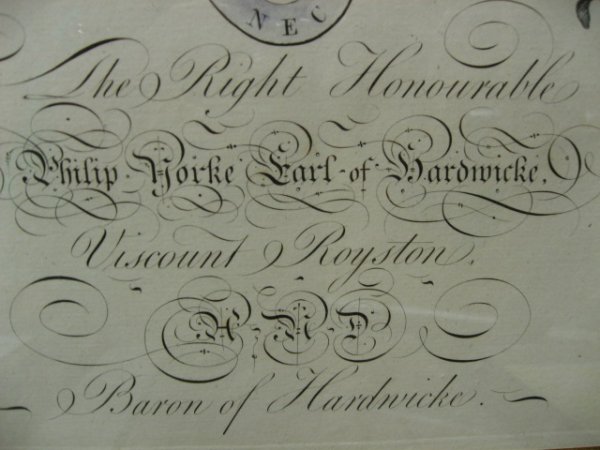 NEC
The Right Honourable
Philip Yorke Earl of Hardwicke,
Viscount Royston,
AND
Baron of Hardwicke.